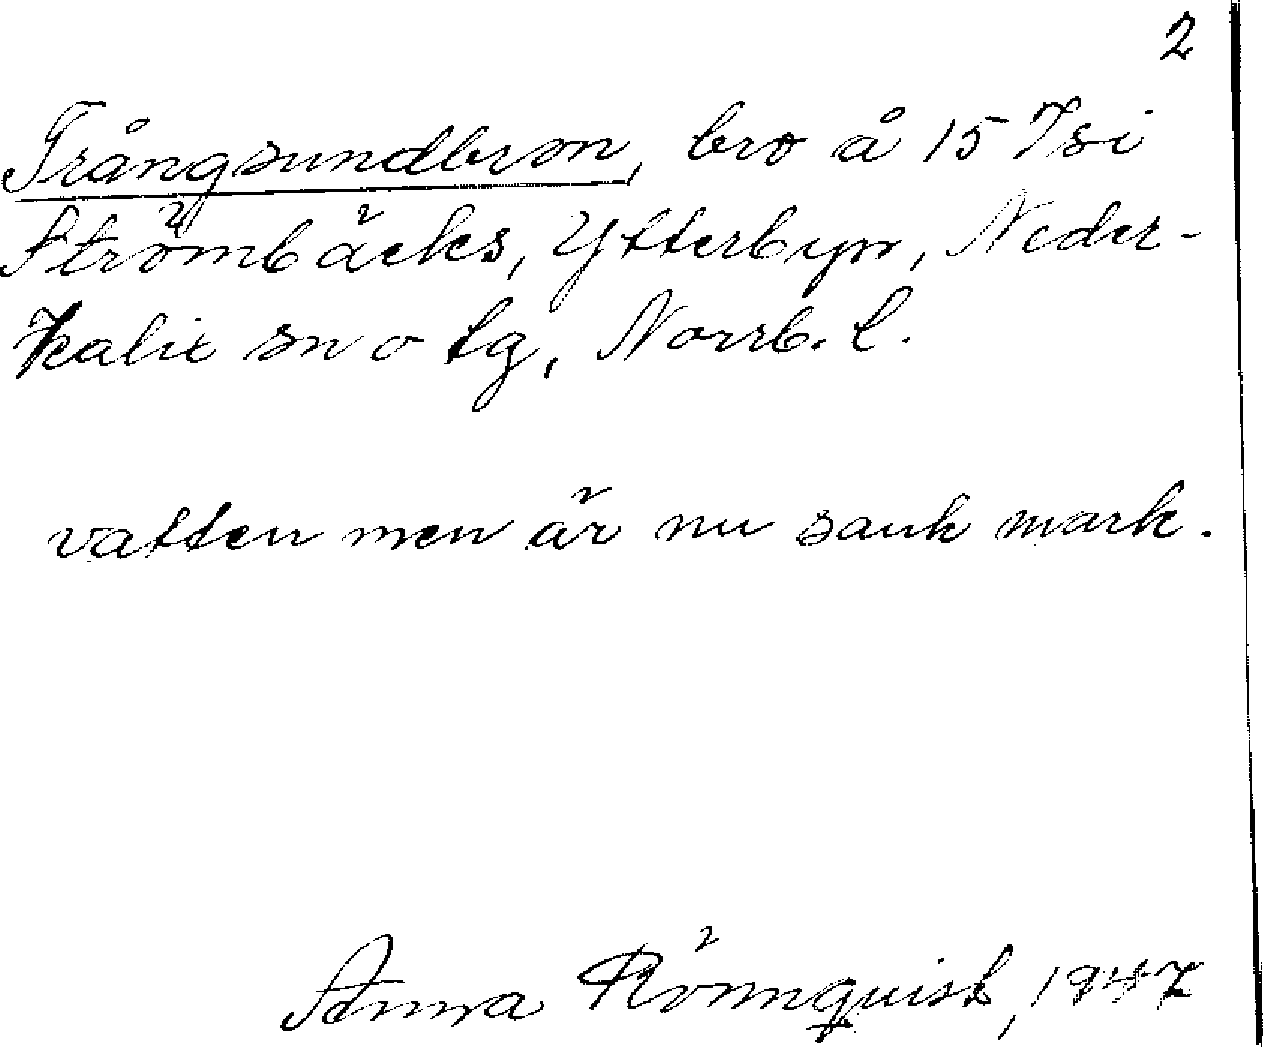 2
Trångsundbron, bro å 15 Isi
Strömbäcks, Ytterbyn, Neder-
Kalix sn o tg, Norrb. l.
vatten men är nu sank mark.
Anna Rönnquist, 1947